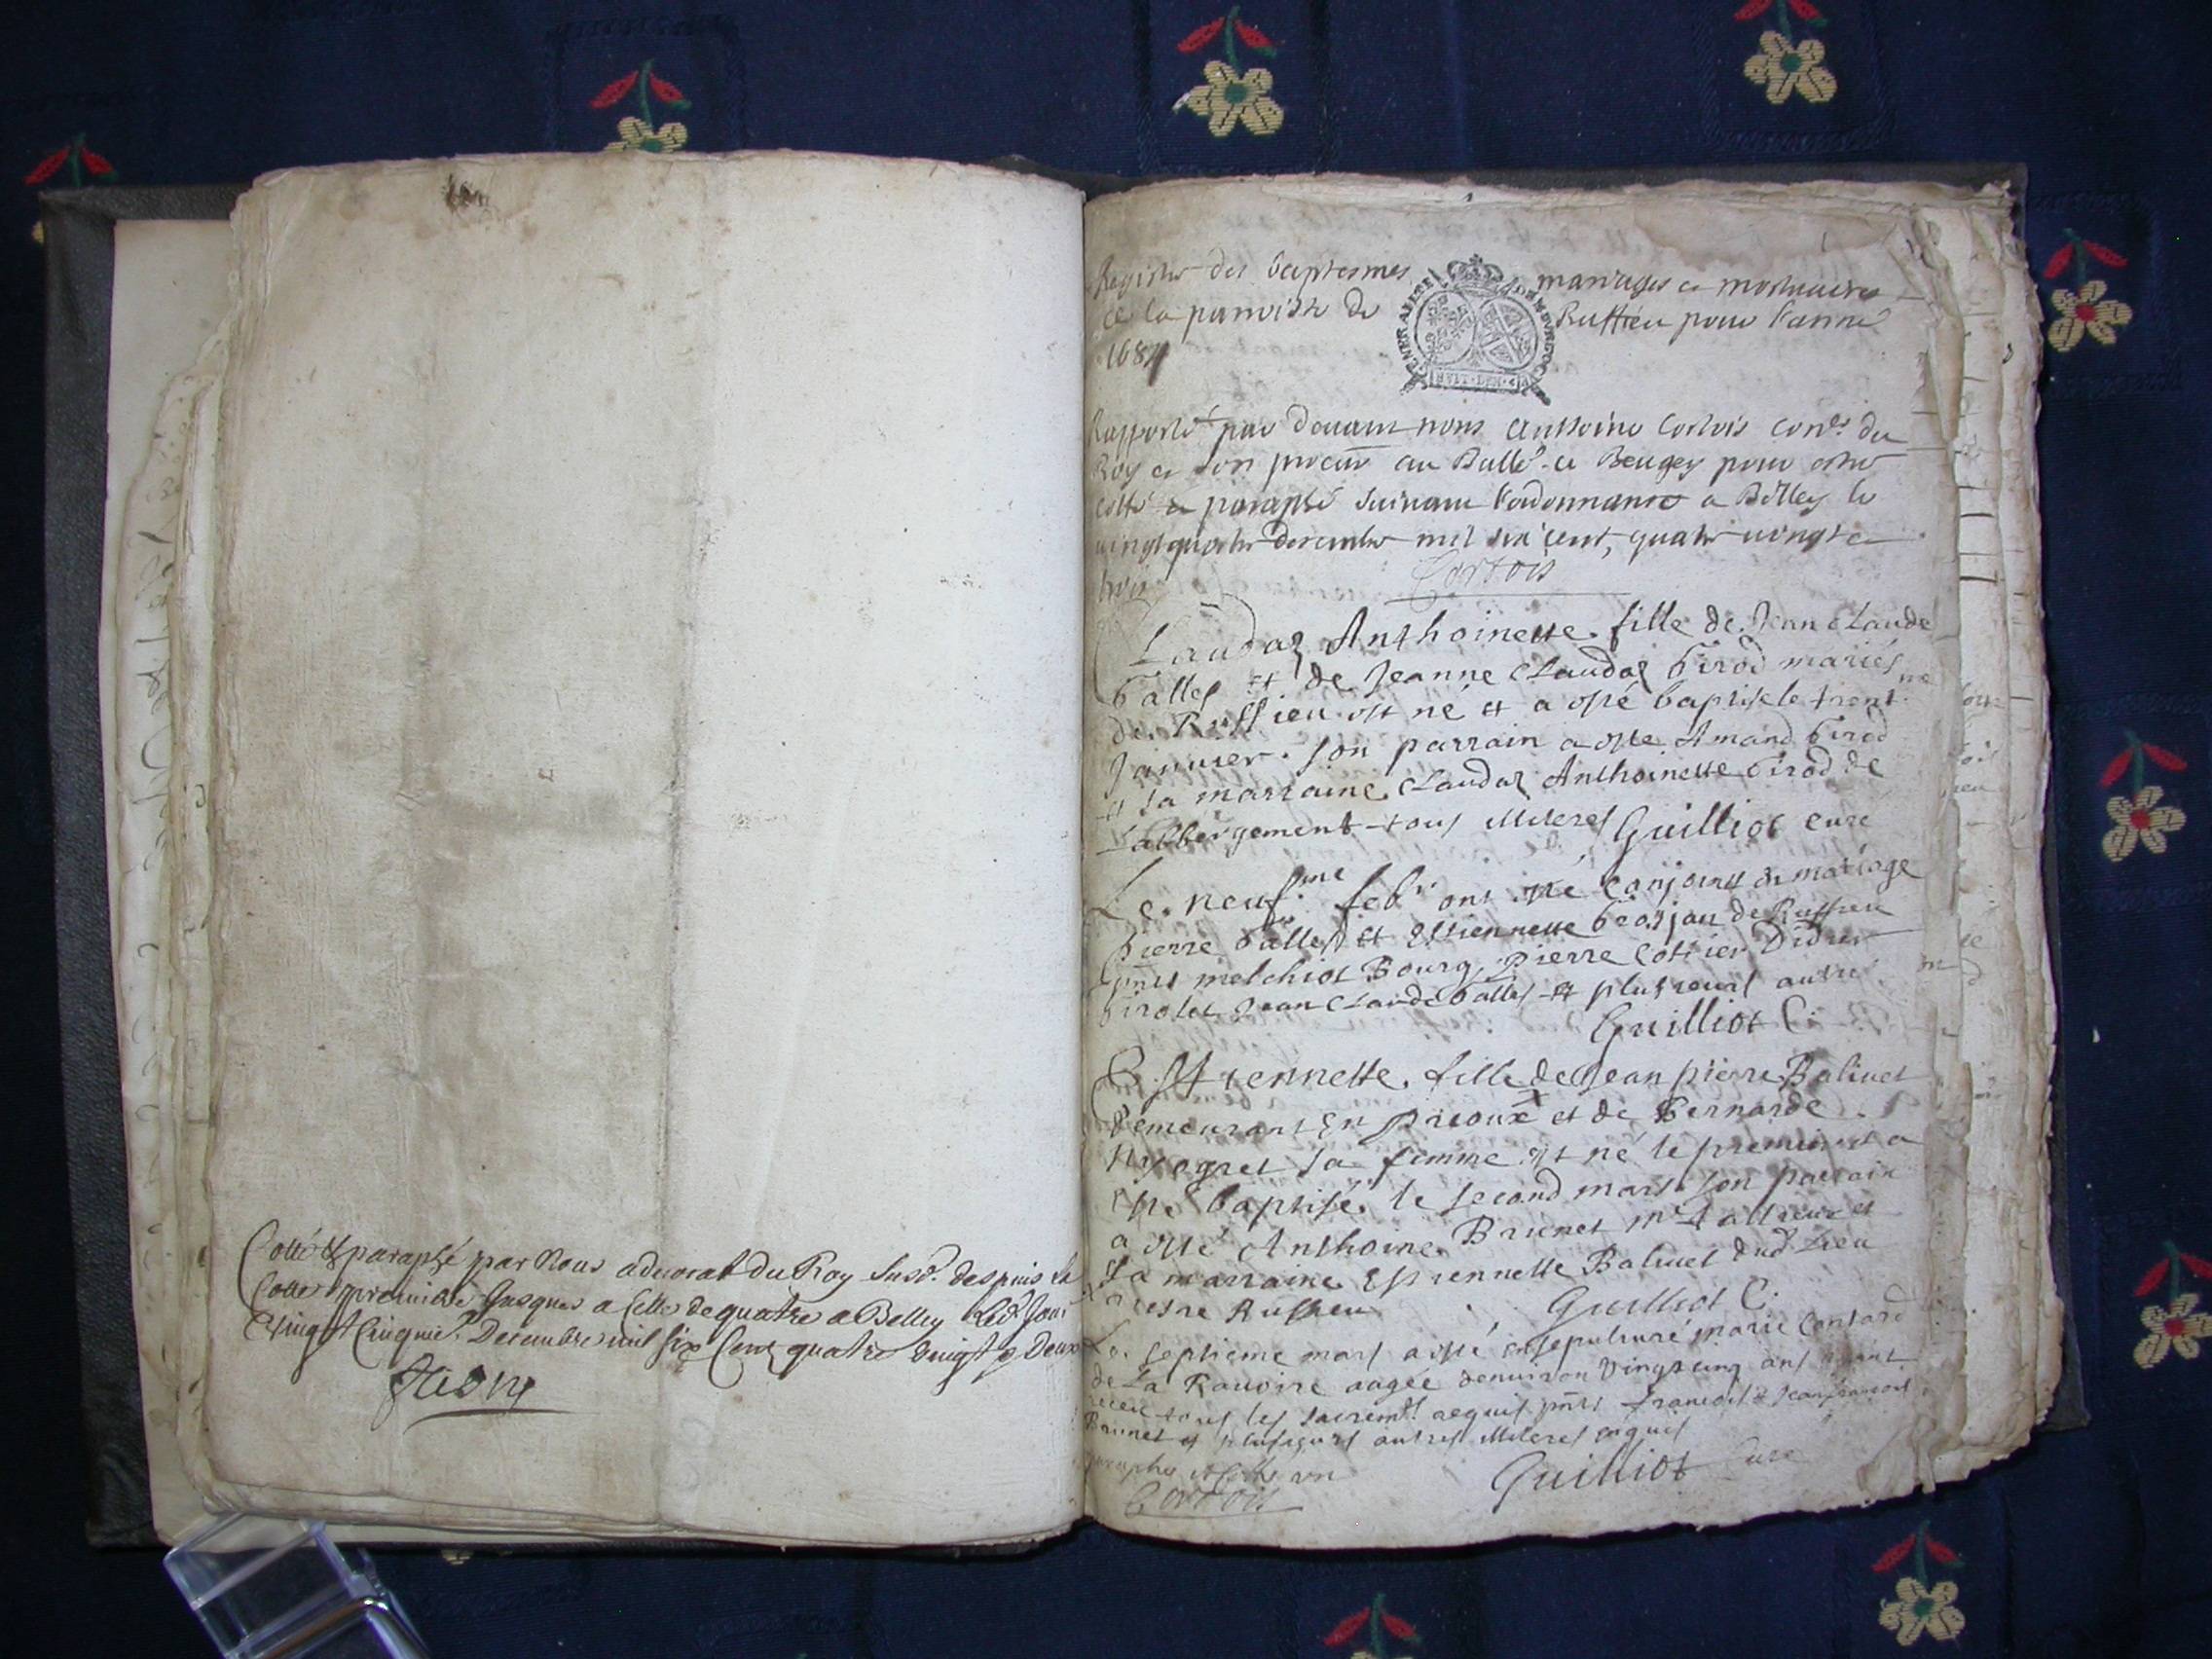 Cotté & paraphé par Nous advocat du Roy susd. despuis la
Cotte premiere Jusques a Celle de quatre a Belley led. Jour
vingt Cinquie. Decembre mil six Cent quatre vingt & Deux
Registre des baptesmes mariages et mortuaires
de la parroisse de Ruffieu pour l'année
1684
GENERALITE DE BOURGOG
HVIT DEN
Rapporté par devant nous Anthoine Cortois coner du
Roy et son procur au Balle de Beugey pour estre
cotté et paraphé suivant l'ordonnance a Belley le
vingt quatre decembre mil six cent, quatre vingt et
trois
Cortois
Claudaz Anthoinette fille de Jean Claude
Balley et de Jeanne Claudaz Birod mariés
de Ruffieu est né et a esté baptisé le trentme
Janvier. son parrain a este Amand Birod
et sa marraine Claudaz Anthoinette Birod de
L'abbergement tous illiteres Guilliot curé
Le neufme febr ont esté Conjoints en mariage
Pierre Balley et Estiennette de Ruffieu
pnts melchiot Bourg, Pierre Cottier Didier
Jean Claude Balley et plusieurs autres
Guilliot C.
Estiennette fille de Jean pierre Balivet
demeurant En prioux et de Bernarde
sa femme est né le premier et a
esté baptisé le second mars son parrain
a esté Anthoine Brunet et
sa marraine Estiennette Balivet dud Lieu
Ruffieu Guilliot C.
Le septieme mars a esté ensepulturé marie Contard
de La Ravoire aagée denviron Vingtcinq ans ayant
receu tous les sacremts requis pnts francois et Jeanfrancois
Brunet et plusieurs autres illiteres enquis
paraphé et cotté un
Cortois
Guilliot Curé